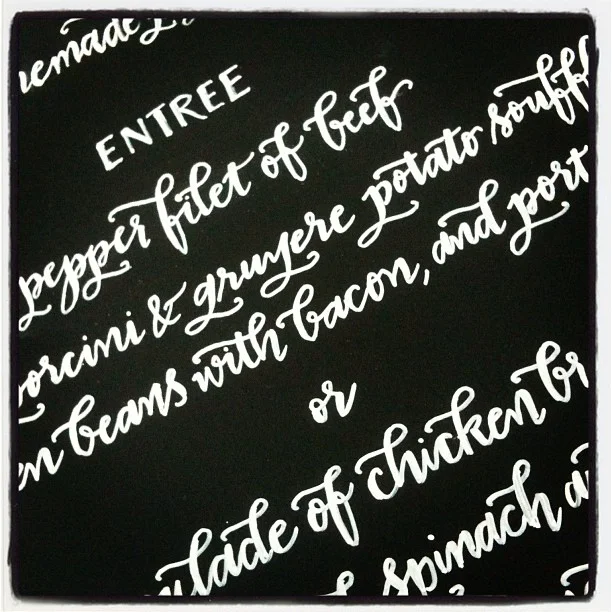 emade
ENTREE
pepper filet of beef
orcini & gruyere potato souffl
en beans with bacon, and port
or
ulade of chicken br
spinach a